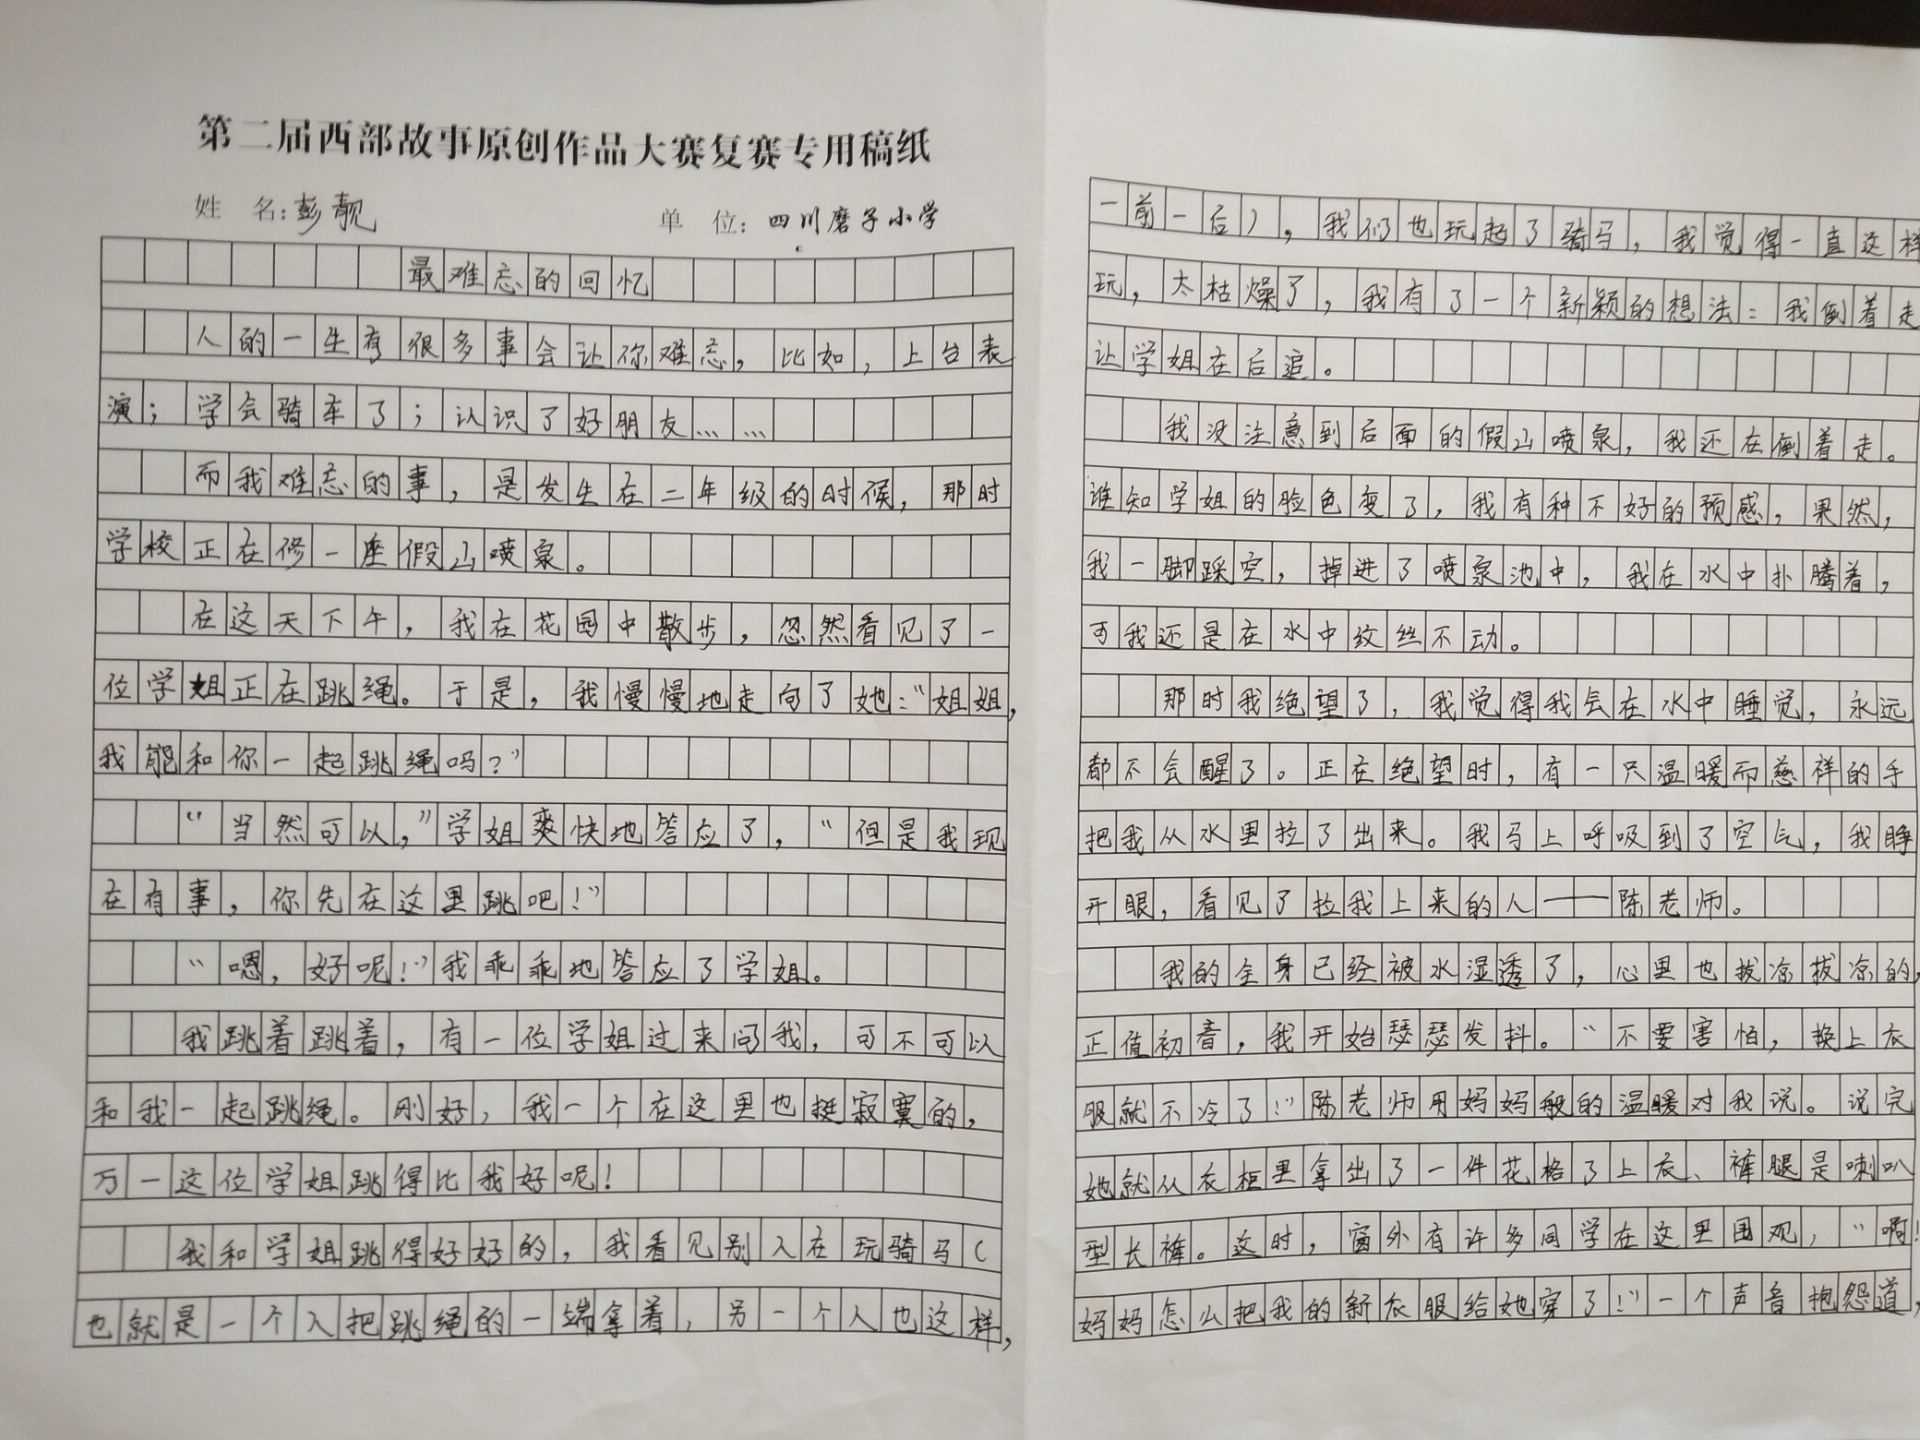 第二届西部故事原创作品大赛复赛专用稿纸
姓 名：彭靓 单 位：四川磨子小学
最难忘的回忆
人的一生有很多事会让你难忘，比如，上台表
演；学会骑车了；认识了好朋友……
而我难忘的事，是发生在二年级的时候，那时
学校正在修一座假山喷泉。
在这天下午，我在花园中散步，忽然看见了一
位学姐正在跳绳。于是，我慢慢地走向了她：“姐姐，
我能和你一起跳绳吗？”
“当然可以，”学姐爽快地答应了，“但是我现
在有事，你先在这里跳吧！”
“嗯，好呢！”我乖乖地答应了学姐。
我跳着跳着，有一位学姐过来问我，可不可以
和我一起跳绳。刚好，我一个在这里也挺寂寞的，
万一这位学姐跳得比我好呢！
我和学姐跳得好好的，我看见别人在玩骑马（
也就是一个人把跳绳的一端拿着，另一个人也这样，
一前一后），我们也玩起了骑马，我觉得一直这样
玩，太枯燥了，我有了一个新颖的想法：我倒着走
让学姐在后追。
我没注意到后面的假山喷泉，我还在倒着走。
谁知学姐的脸色变了，我有种不好的预感，果然，
我一脚踩空，掉进了喷泉池中，我在水中扑腾着，
可我还是在水中纹丝不动。
那时我绝望了，我觉得我会在水中睡觉，永远
都不会醒了。正在绝望时，有一只温暖而慈祥的手
把我从水里拉了出来。我马上呼吸到了空气，我睁
开眼，看见了拉我上来的人——陈老师。
我的全身已经被水湿透了，心里也拔凉拔凉的，
正值初春，我开始瑟瑟发抖。“不要害怕，换上衣
服就不冷了！”陈老师用妈妈般的温暖对我说。说完
她就从衣柜里拿出了一件花格了上衣、裤腿是喇叭
型长裤。这时，窗外有许多同学在这里围观，“啊！
妈妈怎么把我的新衣服给她穿了！”一个声音抱怨道，